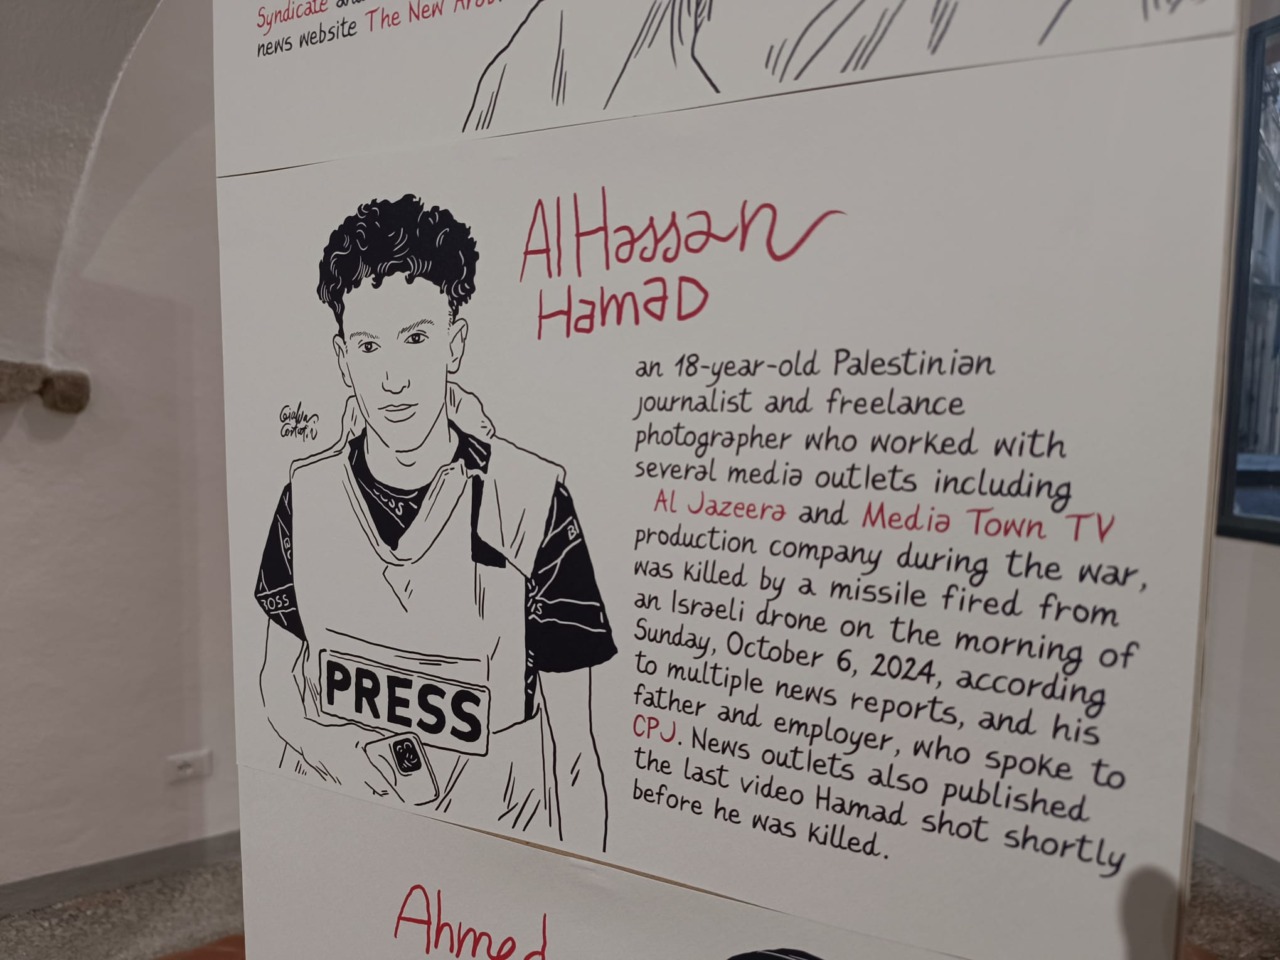 Syndicate and
news website The New Arab
Al Hassan
Hamad
an 18-year-old Palestinian
journalist and freelance
photographer who worked with
several media outlets including
Al Jazeera and Media Town TV
production company during the war,
was killed by a missile fired from
an Israeli drone on the morning of
Sunday, October 6, 2024, according
to multiple news reports, and his
father and employer, who spoke to
CPJ. News outlets also published
the last video Hamad shot shortly
before he was killed.
BOSS
PRESS
Ahmed